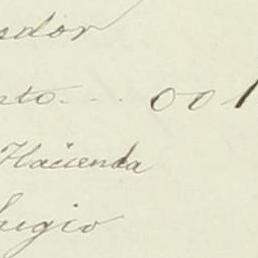 sdor
nto. . . 001
Hacienda
fugio